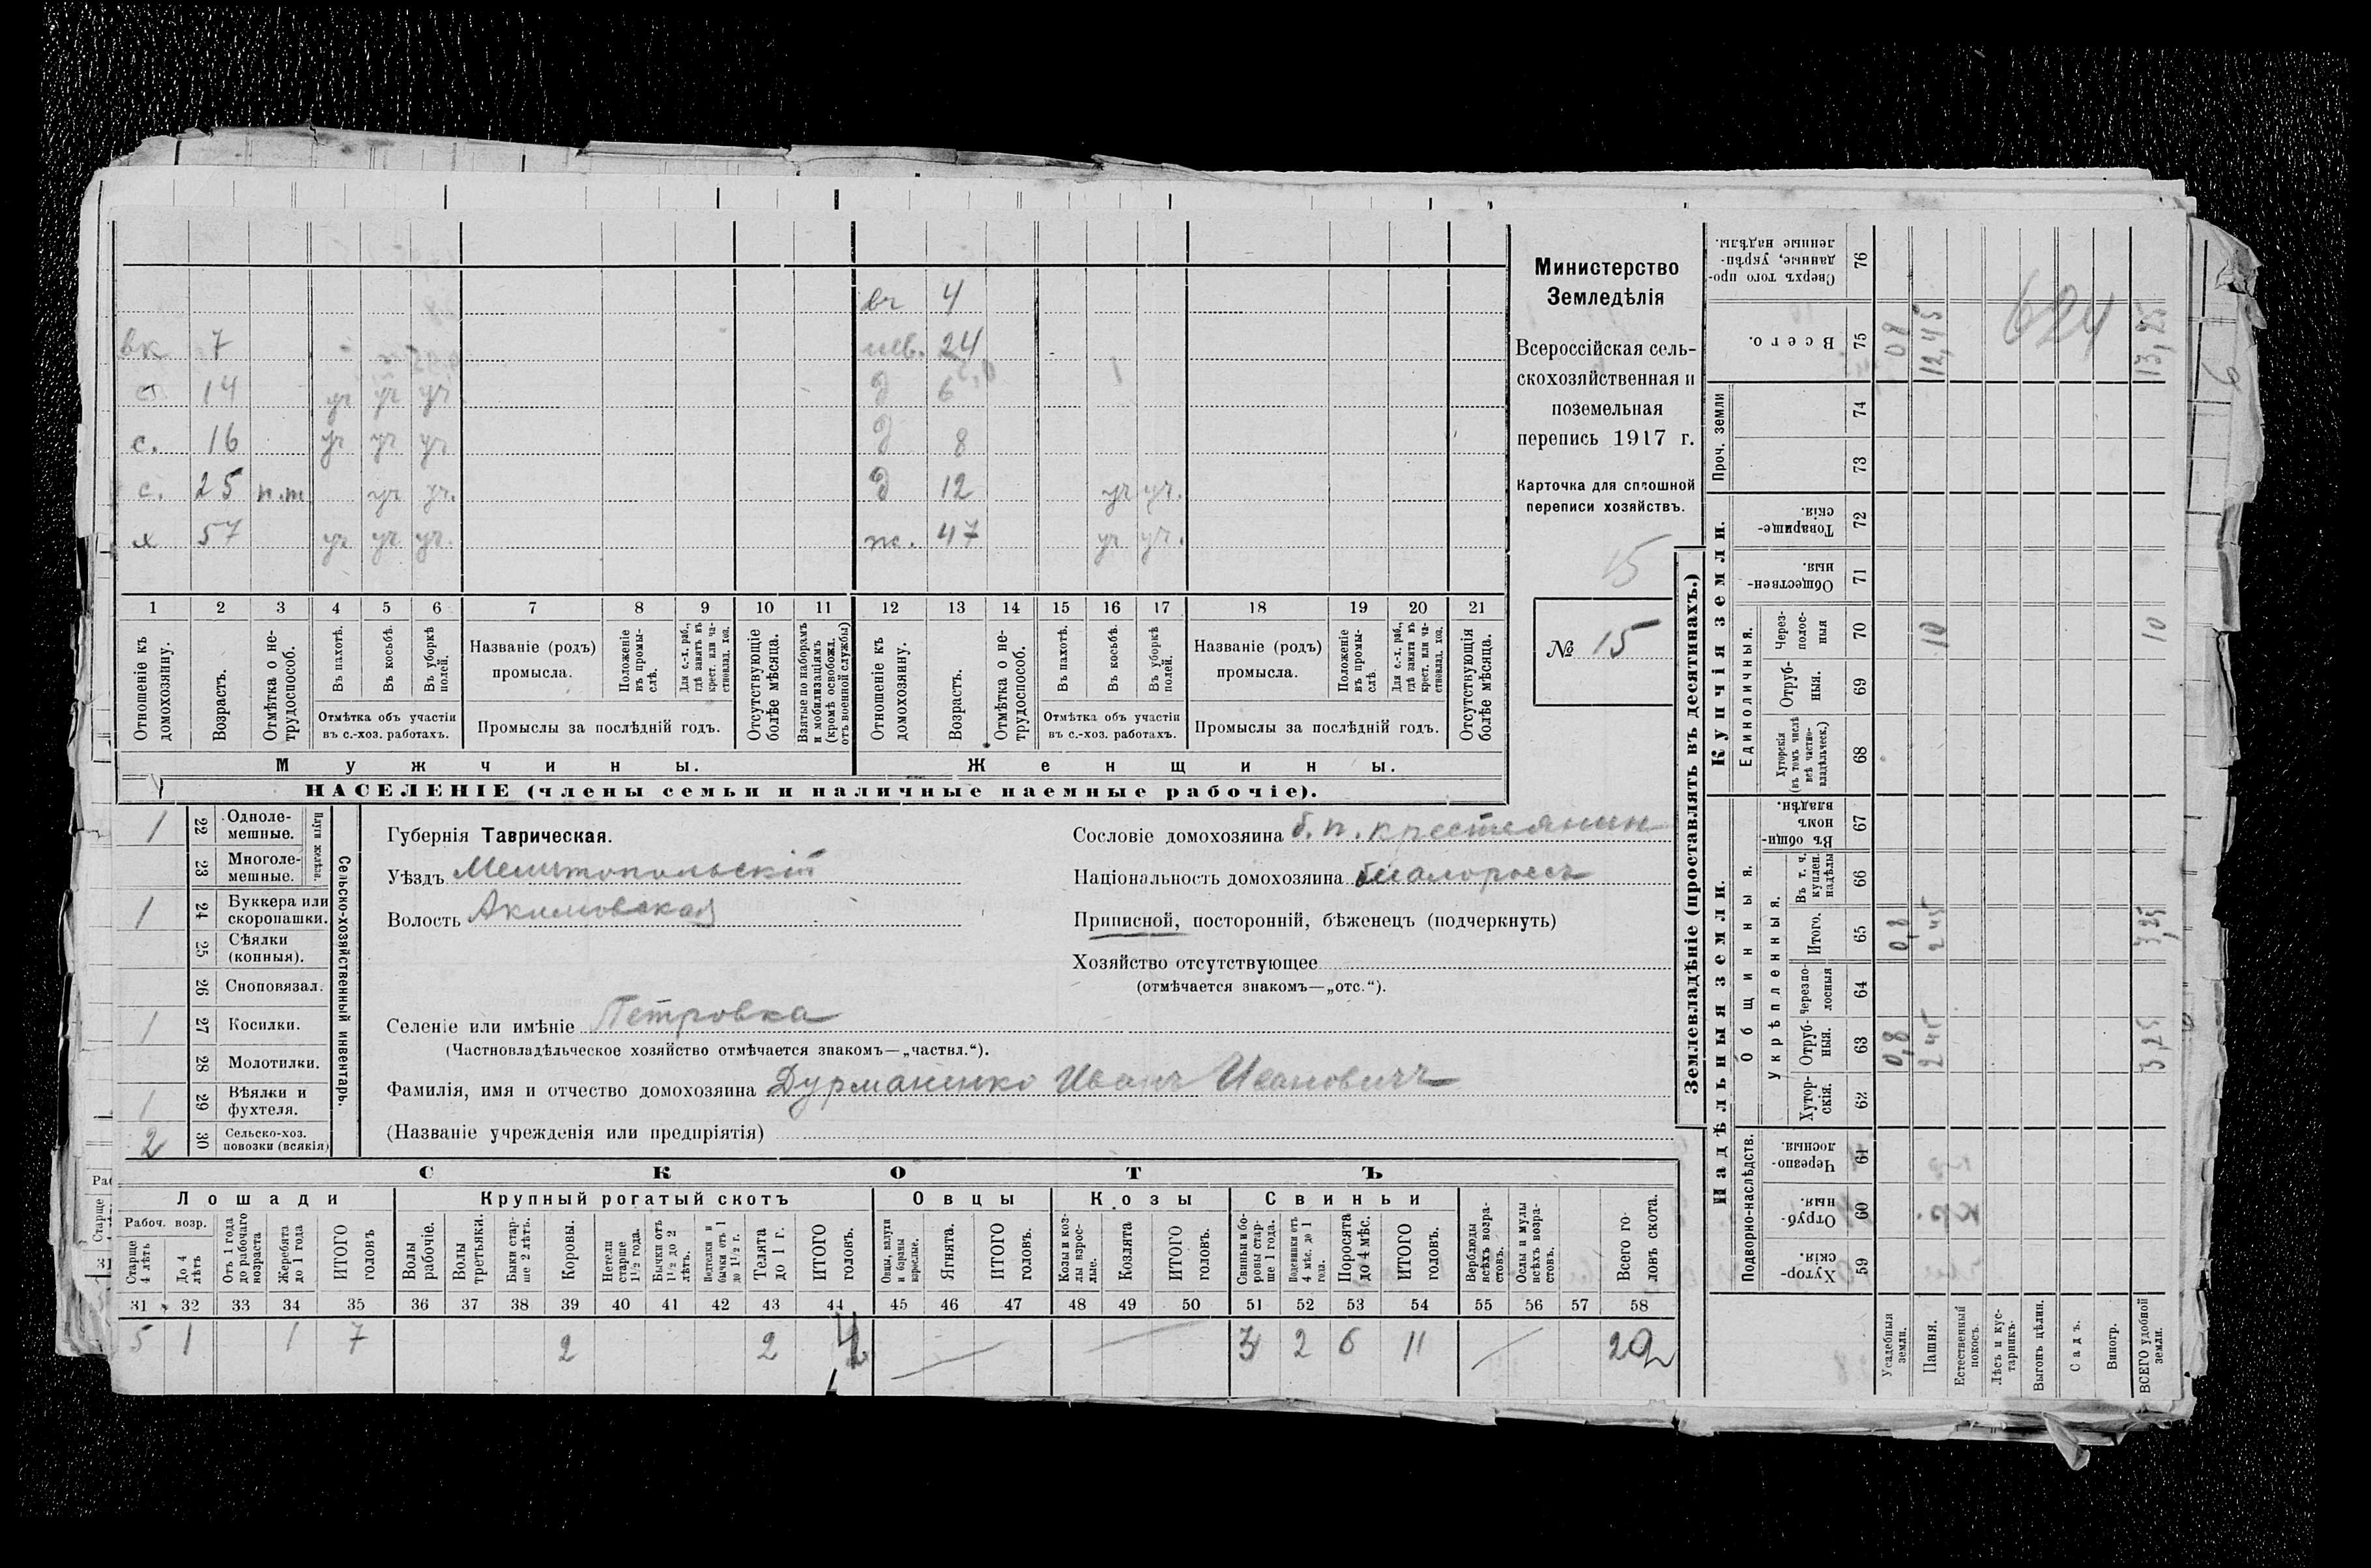 вк 7
с 14 уч уч уч.
с. 16 уч уч уч
с. 25 п.т уч уч.
я 57 уч уч уч.
вч 4
нев. 24
д 6
д 8
д 12 уч уч.
ж. 47 уч уч.
1 2 3 4 5 6 7 8 9 10 11 12 13 14 15 16 17 18 19 20 21
Отношеніе къ домохозяину.
Возрастъ.
Отмѣтка о не-трудоспособ.
Въ пахотѣ.
Въ косьбѣ.
Въ уборкѣ полей.
Отмѣтка объ участіи въ с.-хоз. работахъ.
Названіе (родъ) промысла.
Положеніе въ промы-слѣ.
Для с.-х. раб., гдѣ занятъ въ крест. или ча-стновлад. хоз.
Промыслы за послѣдній годъ.
Отсутствующіе болѣе мѣсяца.
Взятые по наборамъ и мобилизаціямъ (кромѣ освобожд. отъ военной службы)
Отношеніе къ домохозяину.
Возрастъ.
Отмѣтка о не-трудоспособ.
Въ пахотѣ.
Въ косьбѣ.
Въ уборкѣ полей.
Отмѣтка объ участіи въ с.-хоз. работахъ.
Названіе (родъ) промысла.
Положеніе въ промы-слѣ
Для с.-х. раб., гдѣ занята въ крест. или ча-стновлад. хоз.
Промыслы за послѣдній годъ.
Отсутствующія болѣе мѣсяца.
Мужчины.
Женщины.
НАСЕЛЕНІЕ (члены семьи и наличные наемные рабочіе).
Министерство
Земледѣлія
Всероссійская сель-
скохозяйственная и
поземельная
перепись 1917 г.
Карточка для сплошной
переписи хозяйствъ.
15
№ 15
1 22 Одноле-мешные.
23 Многоле-мешные.
Плуги желѣзн.
1 24 Буккера или скоропашки.
25 Сѣялки (конныя).
26 Сноповязал.
1 27 Косилки.
28 Молотилки.
1 29 Вѣялки и фухтеля.
2 30 Сельско-хоз. повозки (всякія)
Сельско-хозяйственный инвентарь.
Губернія Таврическая.
Уѣздъ Мелитопольскій
Волость Акимовская
Сословіе домохозяина б. п. крестьянин
Національность домохозяина малороссъ
Приписной, посторонній, бѣженецъ (подчеркнуть)
Хозяйство отсутствующее
(отмѣчается знакомъ—„отс.“).
Селеніе или имѣніе Петровка
(Частновладѣльческое хозяйство отмѣчается знакомъ—„частвл.“).
Фамилія, имя и отчество домохозяина Дурманенко Иванъ Ивановичъ
(Названіе учрежденія или предпріятія)
СКОТЪ
Лошади Крупный рогатый скотъ Овцы Козы Свиньи
Рабоч. возр.
Старще 4 лѣтъ
До 4 лѣтъ
Отъ 1 года до рабочаго возраста
Жеребята до 1 года
ИТОГО головъ
Волы рабочіе.
Волы третьяки.
Быки стар-ше 2 лѣтъ.
Коровы.
Нетели старше 1½ года.
Бычки отъ 1½ до 2 лѣтъ.
Подтелки и бычки отъ 1 до 1½ г.
Телята до 1 г.
ИТОГО головъ.
Овцы, валухи и бараны взрослые.
Ягнята.
ИТОГО головъ.
Козы и коз-лы взрос-лые.
Козлята
ИТОГО головъ.
Свиньи и бо-ровы стар-ше 1 года.
Подсвинки отъ 4 мѣс. до 1 года.
Поросята до 4 мѣс.
ИТОГО головъ.
Верблюды всѣхъ возра-стовъ.
Ослы и мулы всѣхъ возра-стовъ.
Всего го-ловъ скота.
31 32 33 34 35 36 37 38 39 40 41 42 43 44 45 46 47 48 49 50 51 52 53 54 55 56 57 58
5 1 1 7 2 2 4 3 2 6 11 22
Землевладѣніе (проставлять въ десятинахъ.)
Купчія земли.
Надѣльныя земли.
Сверхъ того про-данные, укрѣп-ленные надѣлы. 76
Всего. 75 0,8 12,45 13,25
624
Проч. земли 74 73
Товарище-скія. 72
Обществен-ныя. 71
Единоличныя.
Через-полос-ныя 70 10 10
Отруб-ныя. 69
Хуторскія (въ томъ числѣ всѣ частно-владѣльческ.) 68
Общинныя.
Въ общи-номъ владѣн. 67
Укрѣпленныя.
Въ т. ч. куплен. надѣлы 66
Итого. 65 0,8 2 45 3,25
Черезпо-лосныя 64
Отруб-ныя. 63 0,8 2 45 3,25
Хутор-скія. 62
Подворно-наслѣдств.
Черезпо-лосныя. 61
Отруб-ныя. 60
Хутор-скія. 59
Усадебныя земли.
Пашня.
Естественный покосъ.
Лѣсъ и кус-тарникъ.
Выгонъ цѣлин.
Садъ.
Виногр.
ВСЕГО удобной земли.
6